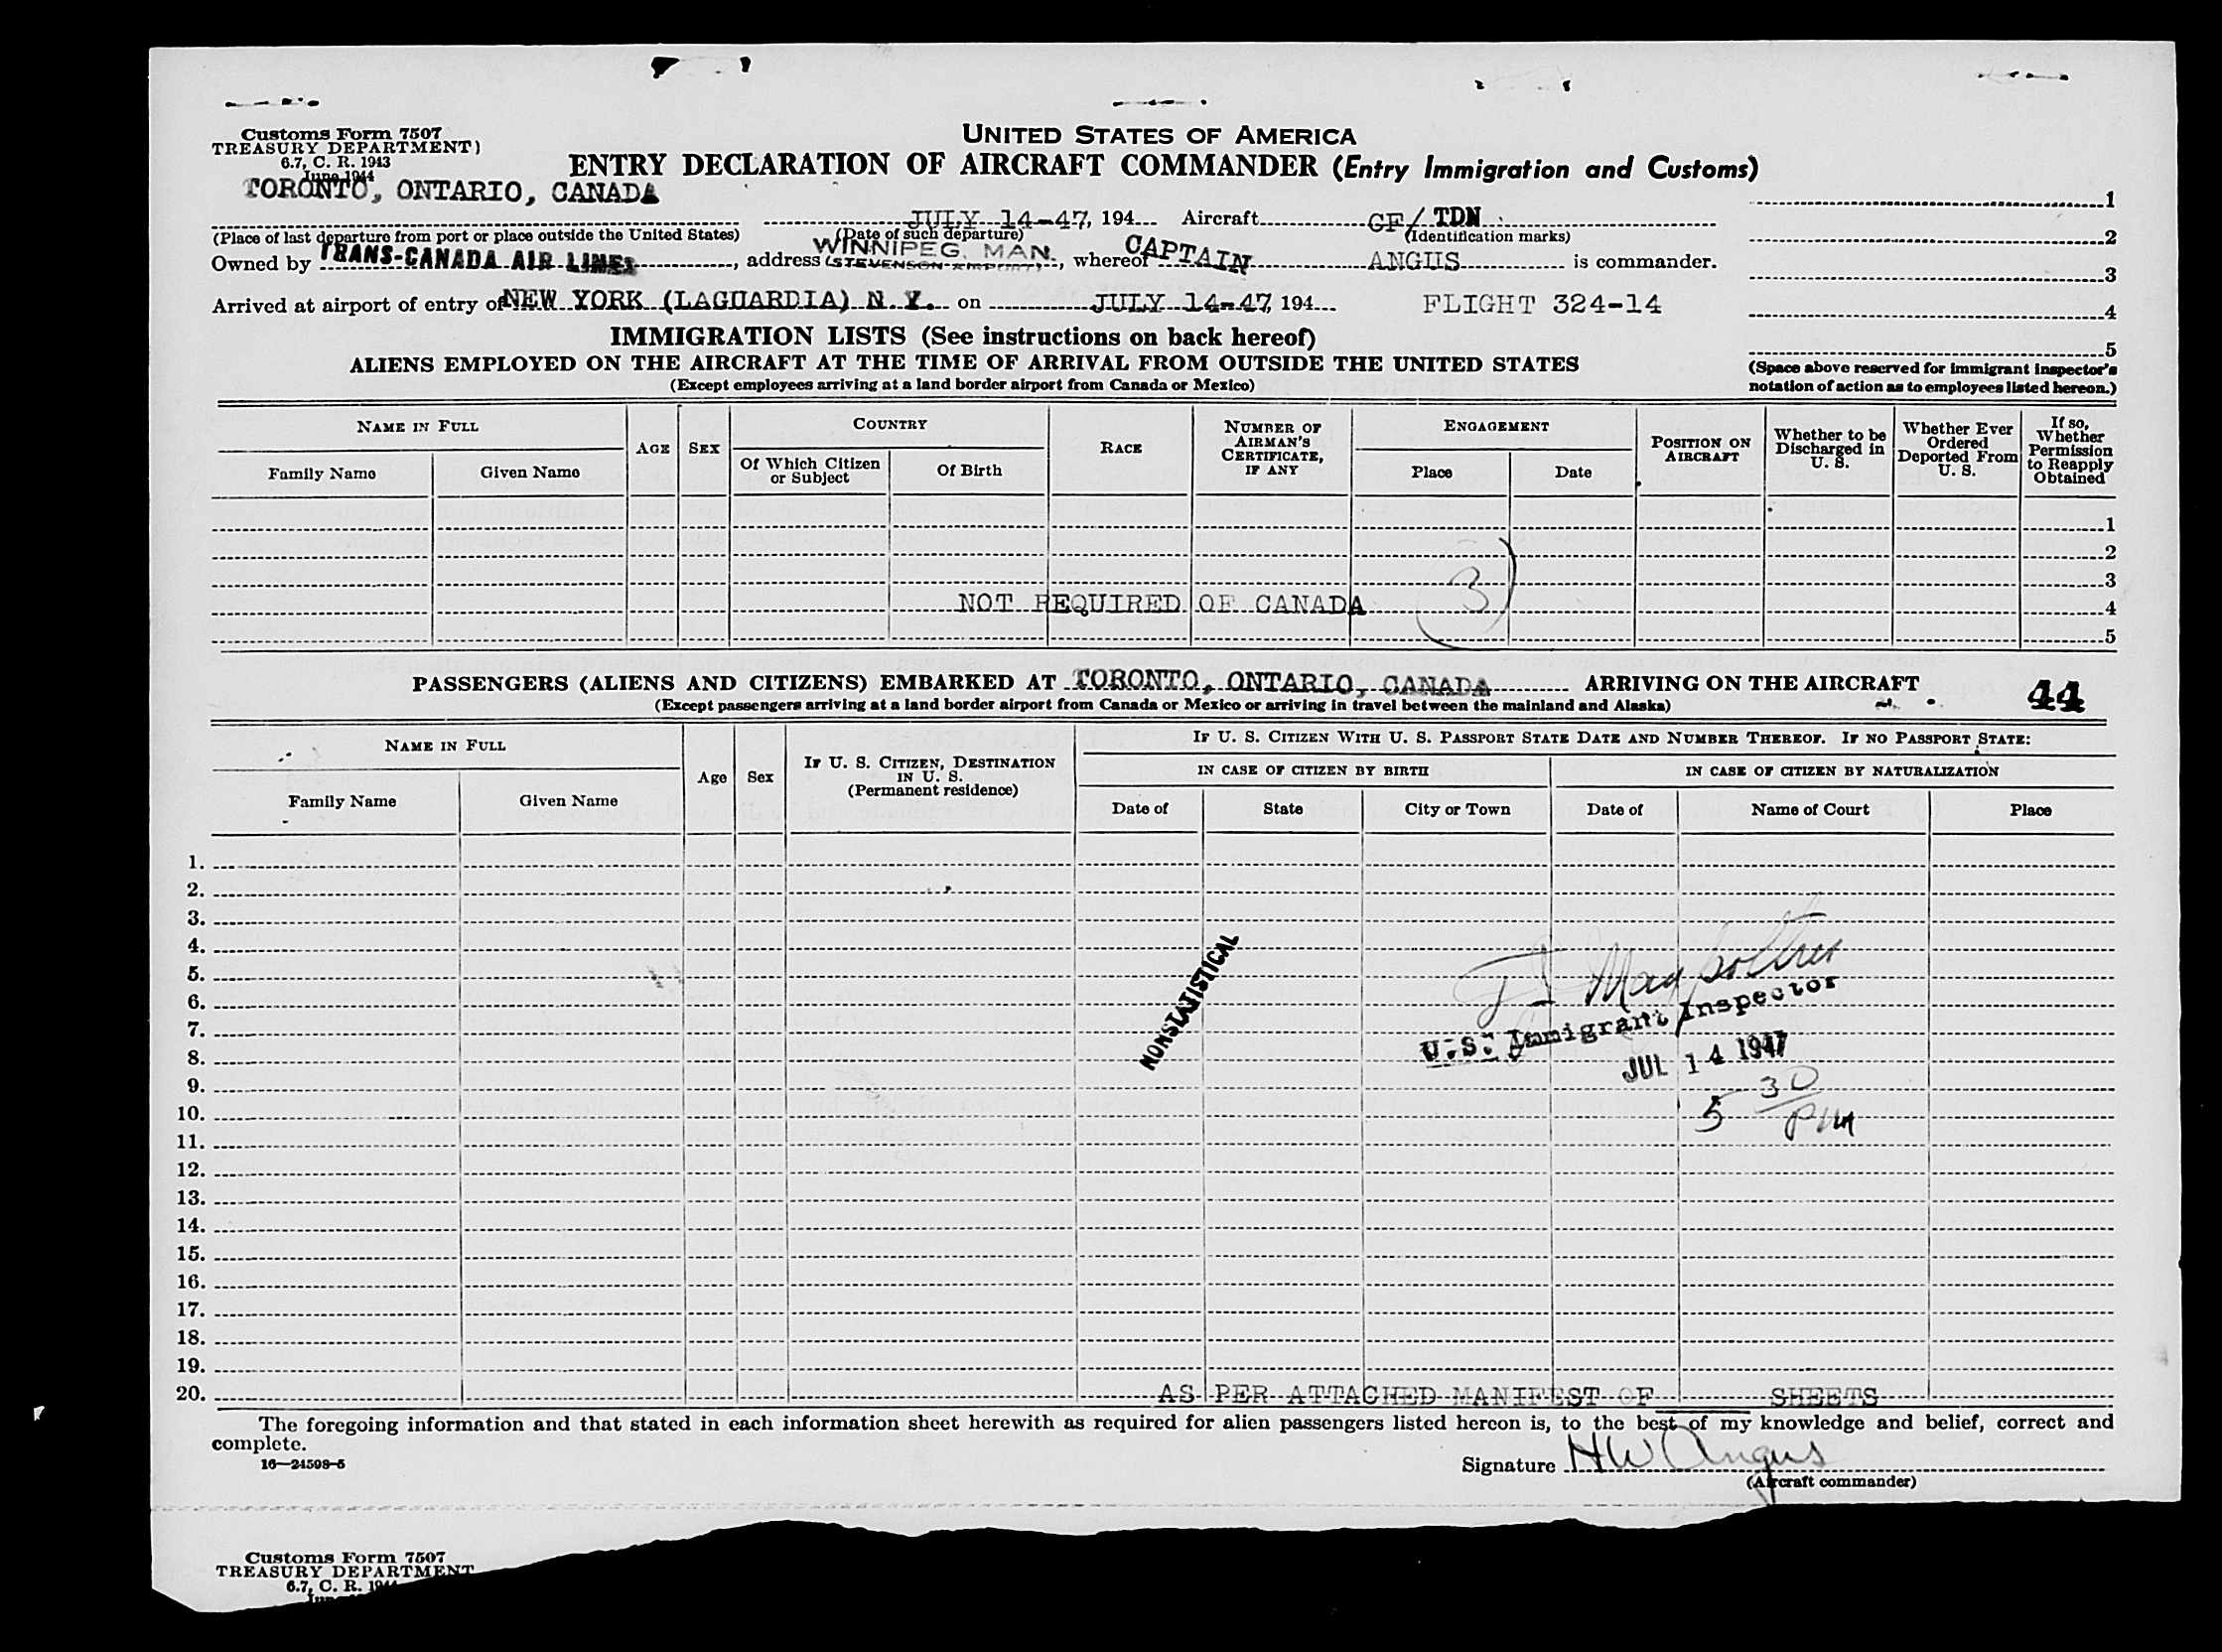 Customs Form 7507
TREASURY DEPARTMENT)
6.7, C. R. 1943
June 1944
UNITED STATES OF AMERICA
ENTRY DECLARATION OF AIRCRAFT COMMANDER (Entry Immigration and Customs)
TORONTO, ONTARIO, CANADA
JULY 14-47, 194 Aircraft CF/ TDN
(Place of last departure from port or place outside the United States) (Date of such departure) (Identification marks)
Owned by TRANS-CANADA AIR LINES, address WINNIPEG. MAN. (STEVENSON AIRPORT), whereof CAPTAIN ANGUS is commander.
Arrived at airport of entry of NEW YORK (LAGUARDIA) N. Y. on JULY 14-47, 194 FLIGHT 324-14
1
2
3
4
5
(Space above reserved for immigrant inspector's
notation of action as to employees listed hereon.)
IMMIGRATION LISTS (See instructions on back hereof)
ALIENS EMPLOYED ON THE AIRCRAFT AT THE TIME OF ARRIVAL FROM OUTSIDE THE UNITED STATES
(Except employees arriving at a land border airport from Canada or Mexico)
NAME IN FULL
Family Name Given Name
AGE
SEX
COUNTRY
Of Which Citizen or Subject
Of Birth
RACE
NUMBER OF AIRMAN'S CERTIFICATE, IF ANY
ENGAGEMENT
Place Date
POSITION ON AIRCRAFT
Whether to be Discharged in U. S.
Whether Ever Ordered Deported From U. S.
If so, Whether Permission to Reapply Obtained
1
2
3
NOT REQUIRED OF CANADA 3 4
5
PASSENGERS (ALIENS AND CITIZENS) EMBARKED AT TORONTO, ONTARIO, CANADA ARRIVING ON THE AIRCRAFT 44
(Except passengers arriving at a land border airport from Canada or Mexico or arriving in travel between the mainland and Alaska)
NAME IN FULL
Family Name Given Name
Age
Sex
IF U. S. CITIZEN, DESTINATION IN U. S.
(Permanent residence)
IF U. S. CITIZEN WITH U. S. PASSPORT STATE DATE AND NUMBER THEREOF. IF NO PASSPORT STATE:
IN CASE OF CITIZEN BY BIRTH IN CASE OF CITIZEN BY NATURALIZATION
Date of State City or Town Date of Name of Court Place
1.
2.
3.
4.
5.
6.
7.
8.
9.
10.
11.
12.
13.
14.
15.
16.
17.
18.
19.
20.
NONSTATISTICAL
U.S. Immigrant Inspector
JUL 14 1947
5 30 PM
AS PER ATTACHED MANIFEST OF SHEETS
The foregoing information and that stated in each information sheet herewith as required for alien passengers listed hereon is, to the best of my knowledge and belief, correct and
complete.
16—24598-5
Signature HW Angus
(Aircraft commander)
Customs Form 7507
TREASURY DEPARTMENT
6.7, C. R. 1944